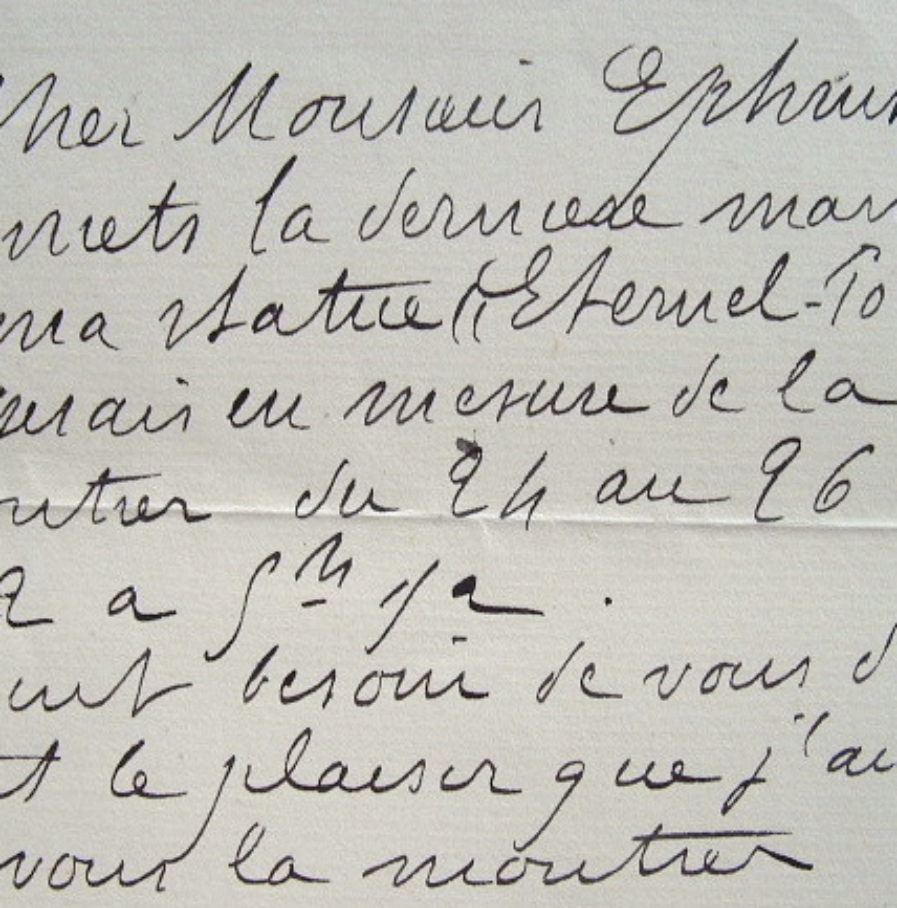 Cher Monsieur Ephrus
mets la derniere mar
ma statue ("Eternel-To
serais en mesure de la
ontrer du 24 au 26
2 a 5h 1/2.
ent besoin de vous d
t le plaisir que j'au
vous la montrer